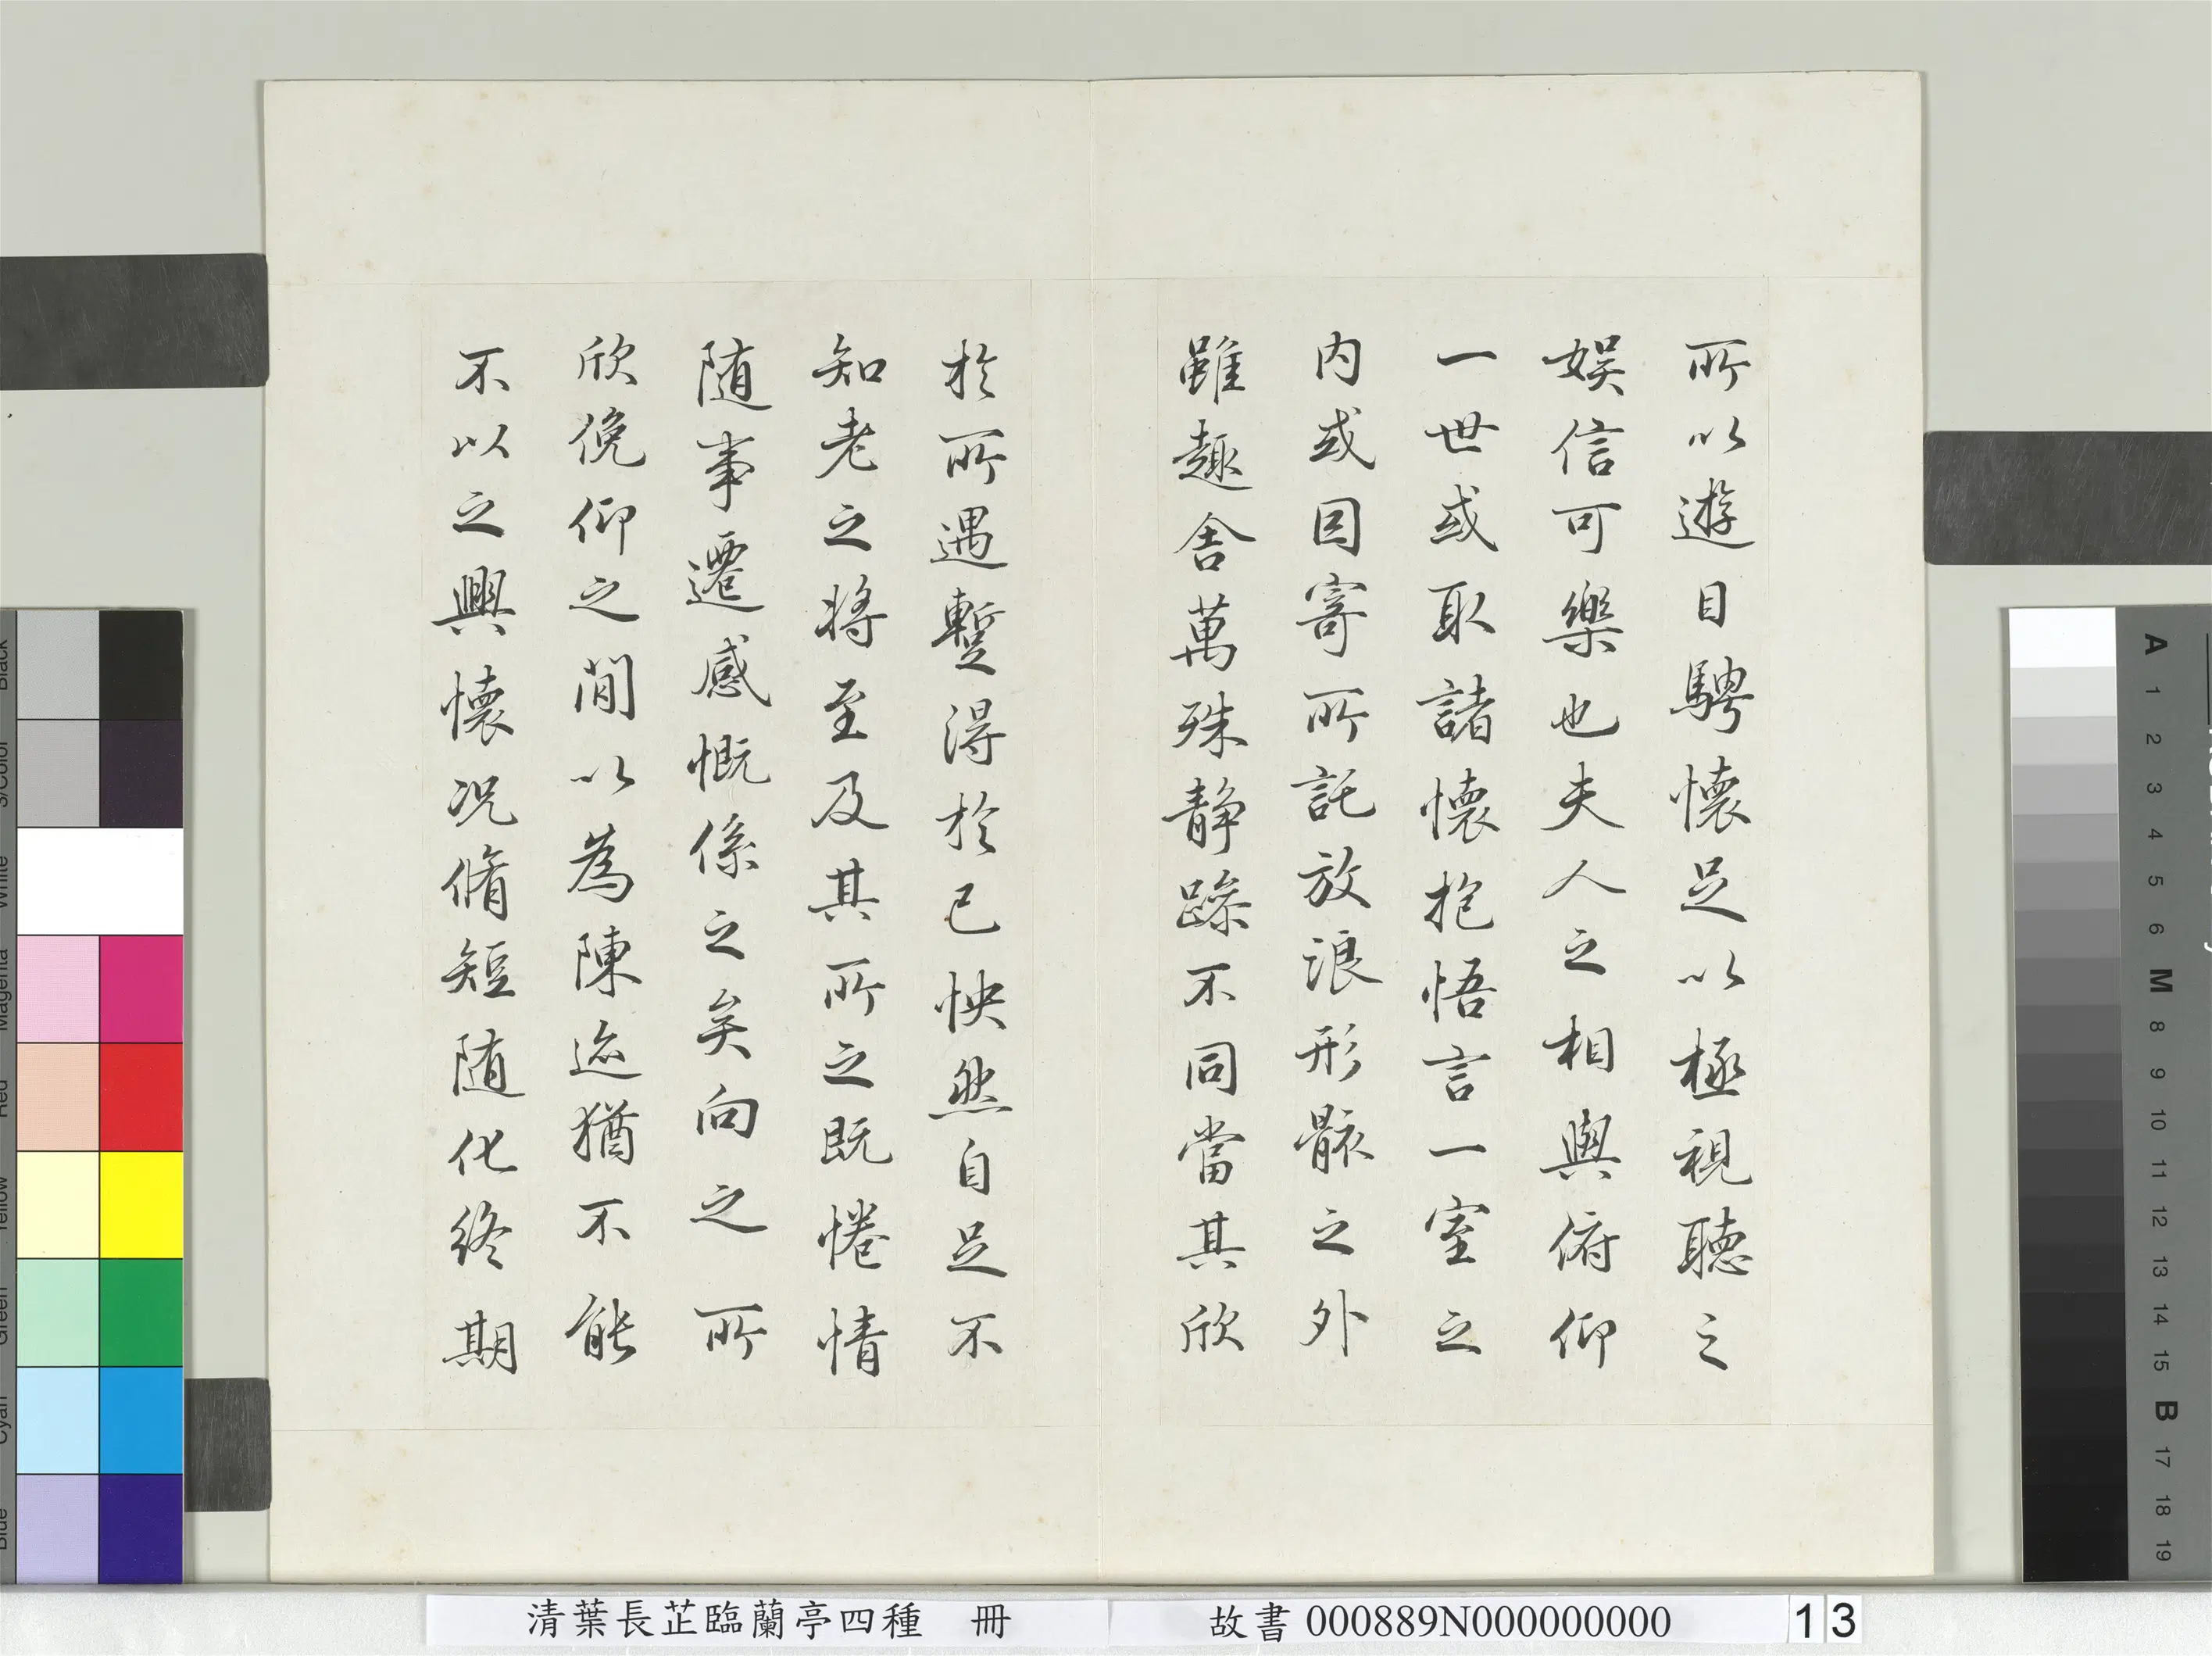 所以遊目騁懷足以極視聽之
娛信可樂也夫人之相與俯仰
一世或取諸懷抱悟言一室之
內或因寄所託放浪形骸之外
雖趣舍萬殊静躁不同當其欣
於所遇蹔得於己怏然自足不
知老之將至及其所之既惓情
随事遷感慨係之矣向之所
欣俛仰之閒以為陳迹猶不能
不以之興懷况脩短随化終期
清葉長芷臨蘭亭四種 冊
故書 000889N000000000
13
Black
3/Color
White
Magenta
Red
Yellow
Green
Cyan
Blue
A
1
2
3
4
5
6
M
8
9
10
11
12
13
14
15
B
17
18
19